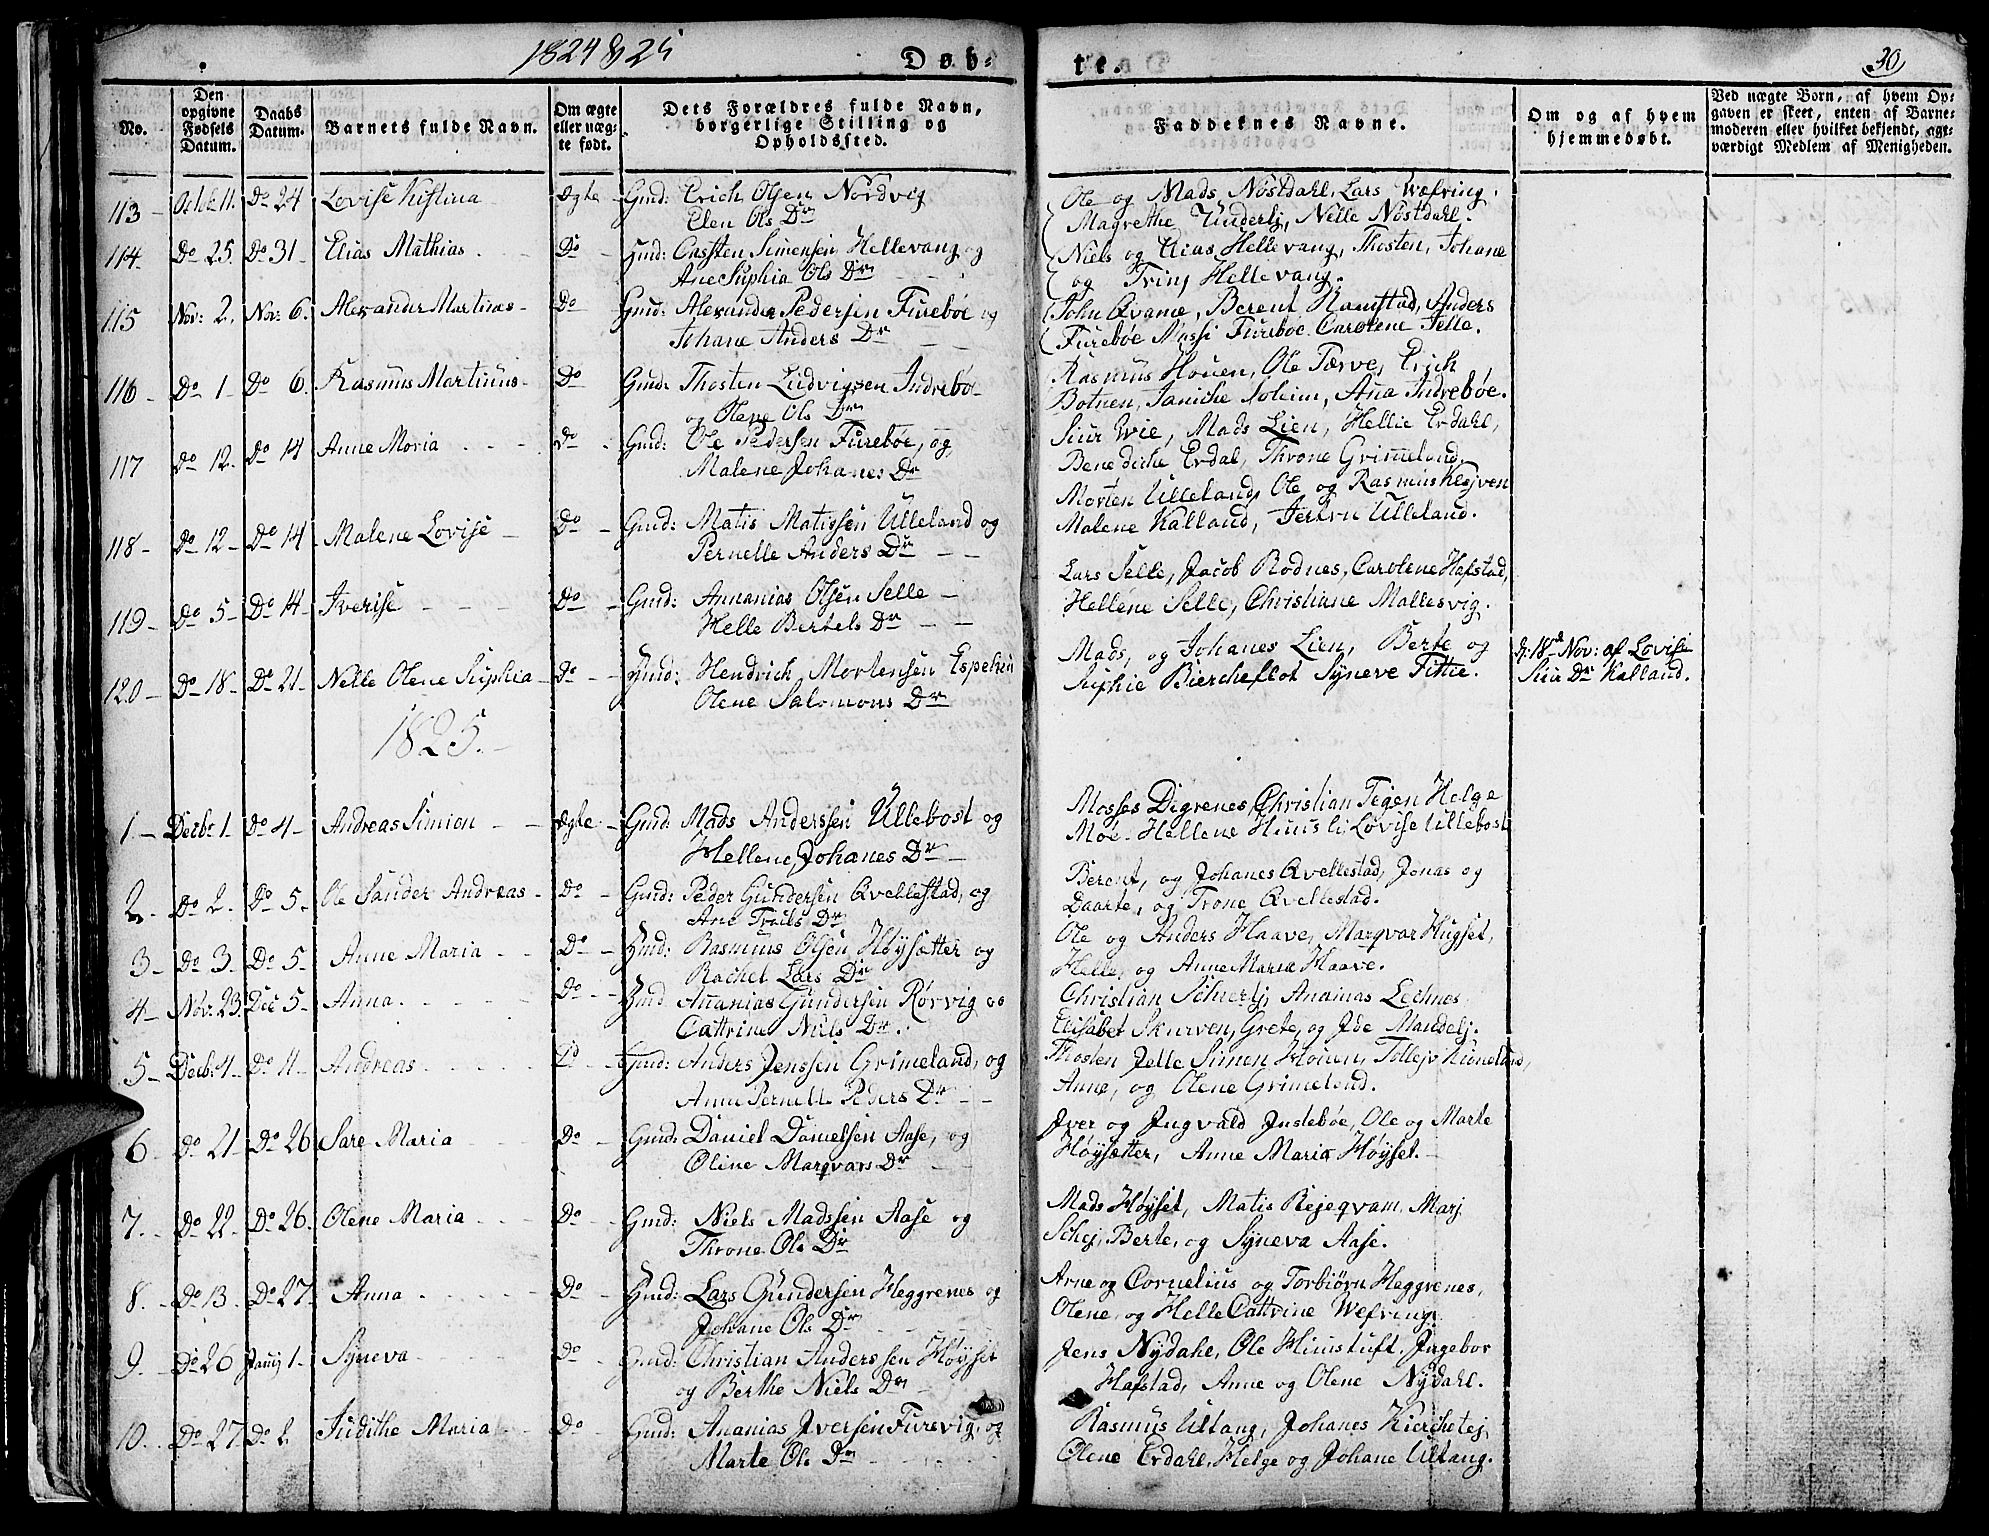 1824 & 25
Døb-
te.
30
No.
Den opgivne Fødsels Datum.
Daabs Datum.
Barnets fulde Navn.
Om ægte eller uægte født.
Dets Forældres fulde Navn, borgerlige Stilling og Opholdssted.
Faddernes Navne.
Om og af hvem hjemmedøbt.
Ved uægte Børn, af hvem Opgaven er skeet, enten af Barnemoderen eller hvilket bekjendt, agtværdigt Medlem af Menigheden.
113 Octbr 11. Do 24 Lovise Kistina Ægte Gmd: Erich Olsen Nordvig
Elen Ols Dr
Ole og Mads Nøstdahl, Lars Wefring,
Magrethe Underlj, Nelle Nøstdahl.
114 Do 25. Do 31 Elias Mathias Do Hmd: Carsten Simensen Hellevang og
Ane Suphia Ols Dr
Niels og Elias Hellevang, Thosten, Johane
og Trinj Hellevang.
115 Nov: 2. Nov: 6. Alexander Martines Do Gmd: Alexander Pedersen Furebøe og
Johane Anders Dr
John Qvame, Berent Ramstad, Anders
Furebøe Massi Furebøe Carolene Selle.
116 Do 1 Do 6. Rasmus Martinus Do Gmd: Thosten Ludvigsen Indrebøe
og Olene Ols Dr
Rasmus Houen, Ole Tærve, Erich
Botnen, Janiche Soleim, Ana Indrebøe.
117 Do 12. Do 14 Anne Moria Do Gmd: Ole Pedersen Furebøe, og
Malene Johanes Dr
Siur Wie, Mads Lien, Hellie Erdahl,
Benedicke Erdal, Throne Grimeland.
118 Do 12 Do 14 Malene Lovise Do Gmd: Matis Matissen Ulleland og
Pernelle Anders Dr
Morten Ulleland, Ole og Rasmus Klejven
Malene Kalland, Ulleland.
119 Do 5 Do 14 Iverise Do Gmd: Annanias Olsen Selle
Helle Bertels Dr
Lars Selle, Jacob Rodnes, Carolene Hafstad,
Hellene Selle, Christiane Mallesvig.
120 Do 18 Do 21 Nelle Olene Suphia Do Hmd: Hendrich Mortensen Espeken
Olene Salomons Dr
Mads, og Johanes Lien, Berte og
Suphie Biercheflot Syneve Fittie.
D: 18de Nov: af Lovise
Siur Dr Kalland.
1825.
1 Decbr 1 Do 4 Andreas Simion Ægte Gmd Mads Anderssen Ullebost og
Hellene Johanes Dr
Mosses Digrenes, Christian Tejgen Helge
Moe Hellene Huusli Lovise Ullebost
2 Do 2. Do 5 Ole Sander Andreas Do Gmd: Peder Gundersen Qvellestad, og
Ane Truls Dr
Berent, og Johanes Qvellestad, Jonas og
Daarte, og Trone Qvellestad.
3 Do 3. Do 5 Anne Maria Do Hmd: Rasmus Olsen Høysætter og
Rachel Lars Dr
Ole og Anders Haave, Marqvar Hugset,
Helle, og Anne Maria Haave.
4 Nov: 23. Dec 5 Anna. Do Hmd Ananias Gundersen Rørvig og
Cattrine Niels Dr.
Christian Schierlj, Ananias Lechnes
Elisabet Skurven, Grete, og Ide Mandelj.
5 Decb: 4 Do 11 Andreas Do Gmd: Anders Jenssen Grimeland, og
Anne Pernelle Peders Dr
Thosten Jelle Simen Houen, Tollejv Grimeland,
Anne, og Olene Grimeland.
6 Do 21 Do 26 Sare Maria Do Gmd: Daniel Danielsen Aase, og
Oline Marqvars Dr
Iver og Ingvald Instebøe, Ole og Marte
Høysætter, Anne Maria Høyset.
7. Do 22 Do 26. Olene Maria Do Gmd: Niels Madssen Aase og
Throne Ols Dr
Mads Høyset, Matis Rejeqvam, Marj
Schej, Berte, og Syneva Aase.
8. Do 13. Do 27 Anna Do Hmd: Lars Gundersen Heggrenes og
Johane Ols Dr
Arne og Cornelius og Torbiørn Heggrenes,
Olene, og Helle Cattrine Wefring.
9. Do 26 Janj 1 Syneva Do Gmd: Christian Anderssen Høyset
og Berthe Niels Dr
Jens Nydahl, Ole Himstuft, Ingebor
Hafstad, Anne og Olene Nydahl.
10. Do 27 Do 2. Judithe Maria Do Gmd: Ananias Iversen Furevig, og
Marte Ols Dr
Rasmus Uttang, Johanes Kierchetej,
Olene Erdahl, Helge og Johane Uttang.